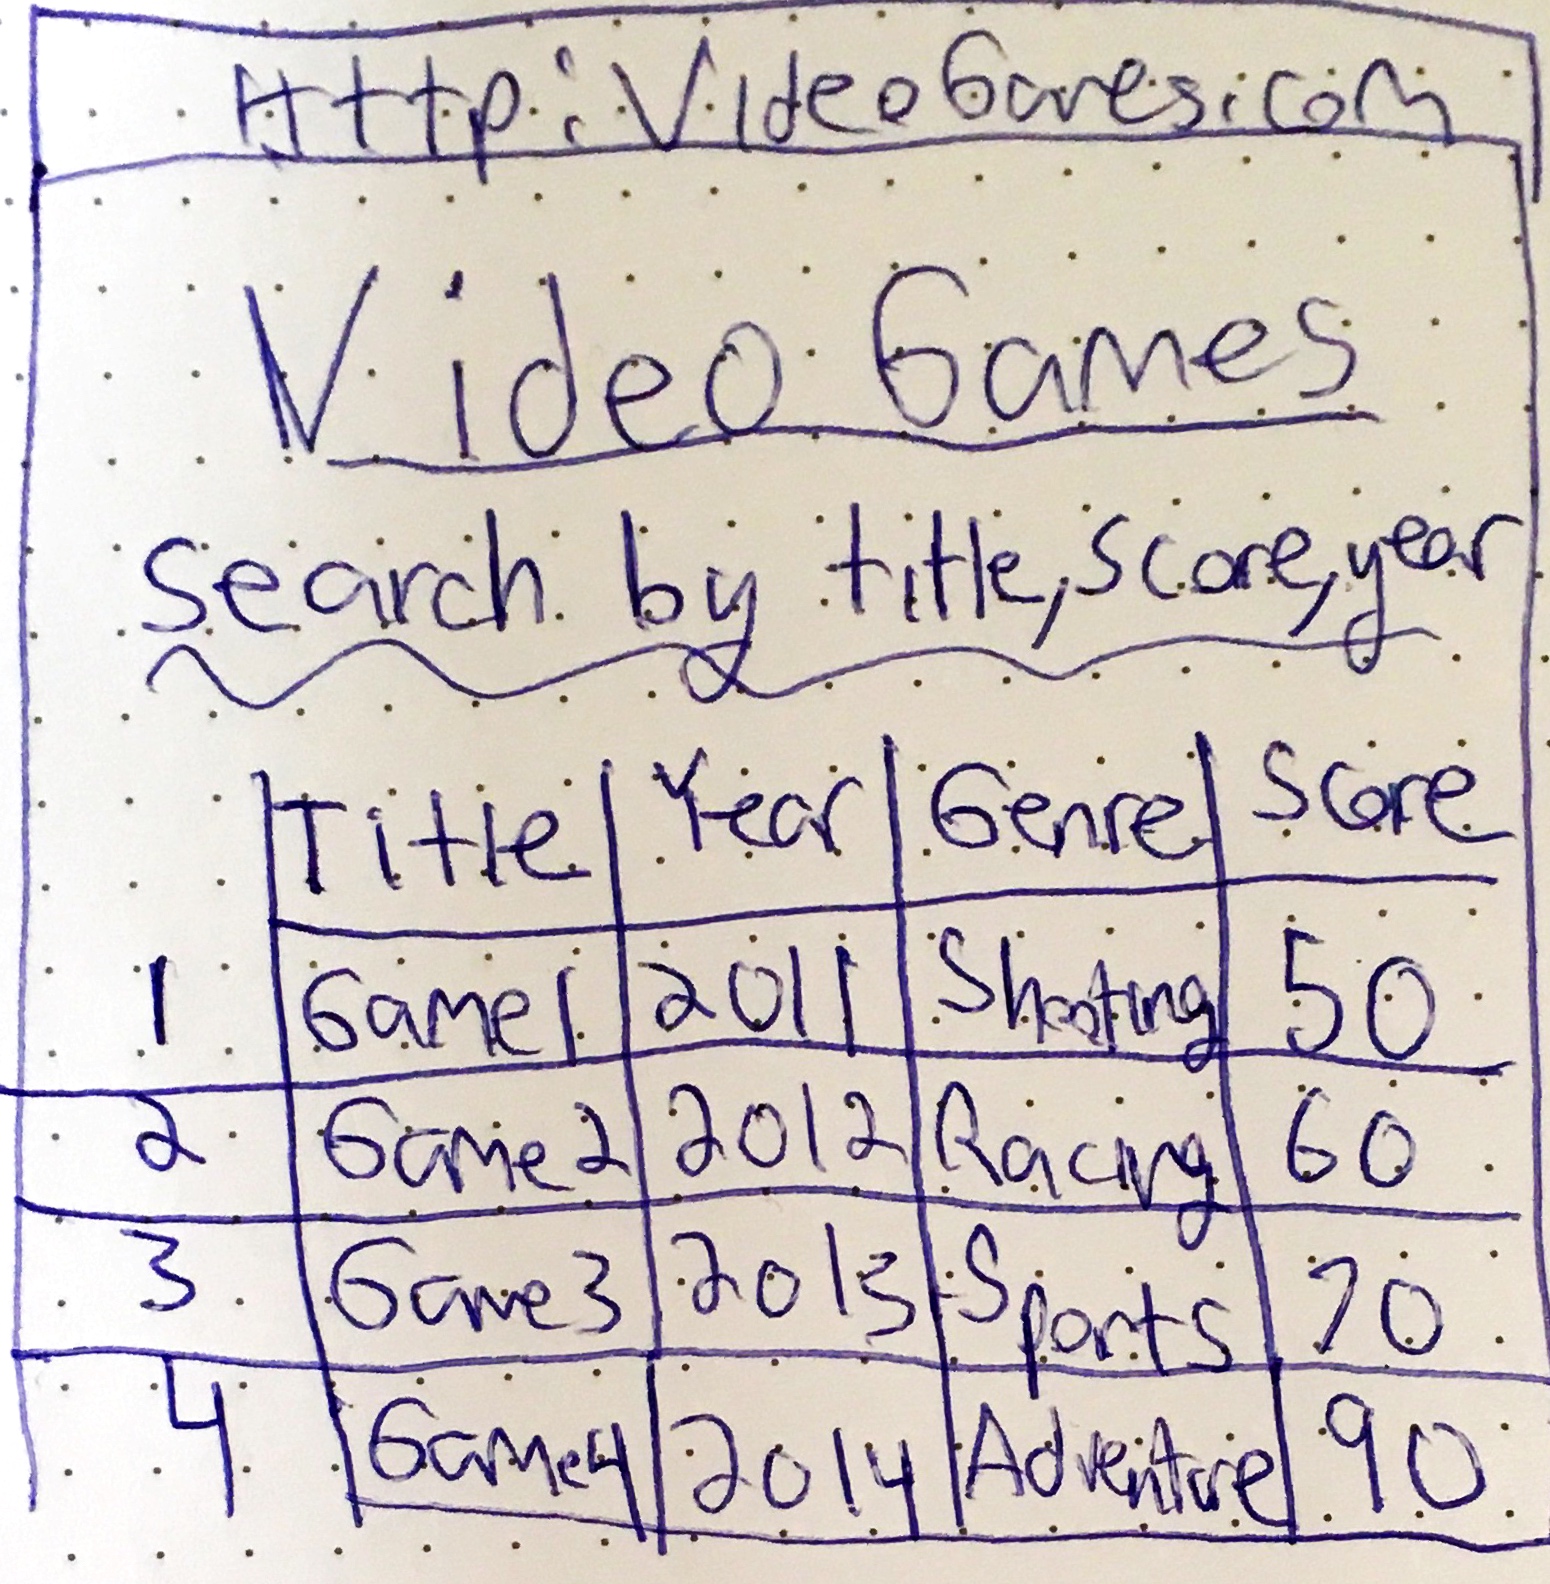 Http:VideoGames.com
Video Games
Search by title, score, year
Title Year Genre Score
1 Game1 2011 Shooting 50
2 Game2 2012 Racing 60
3 Game3 2013 Sports 70
4 Game4 2014 Adventure 90